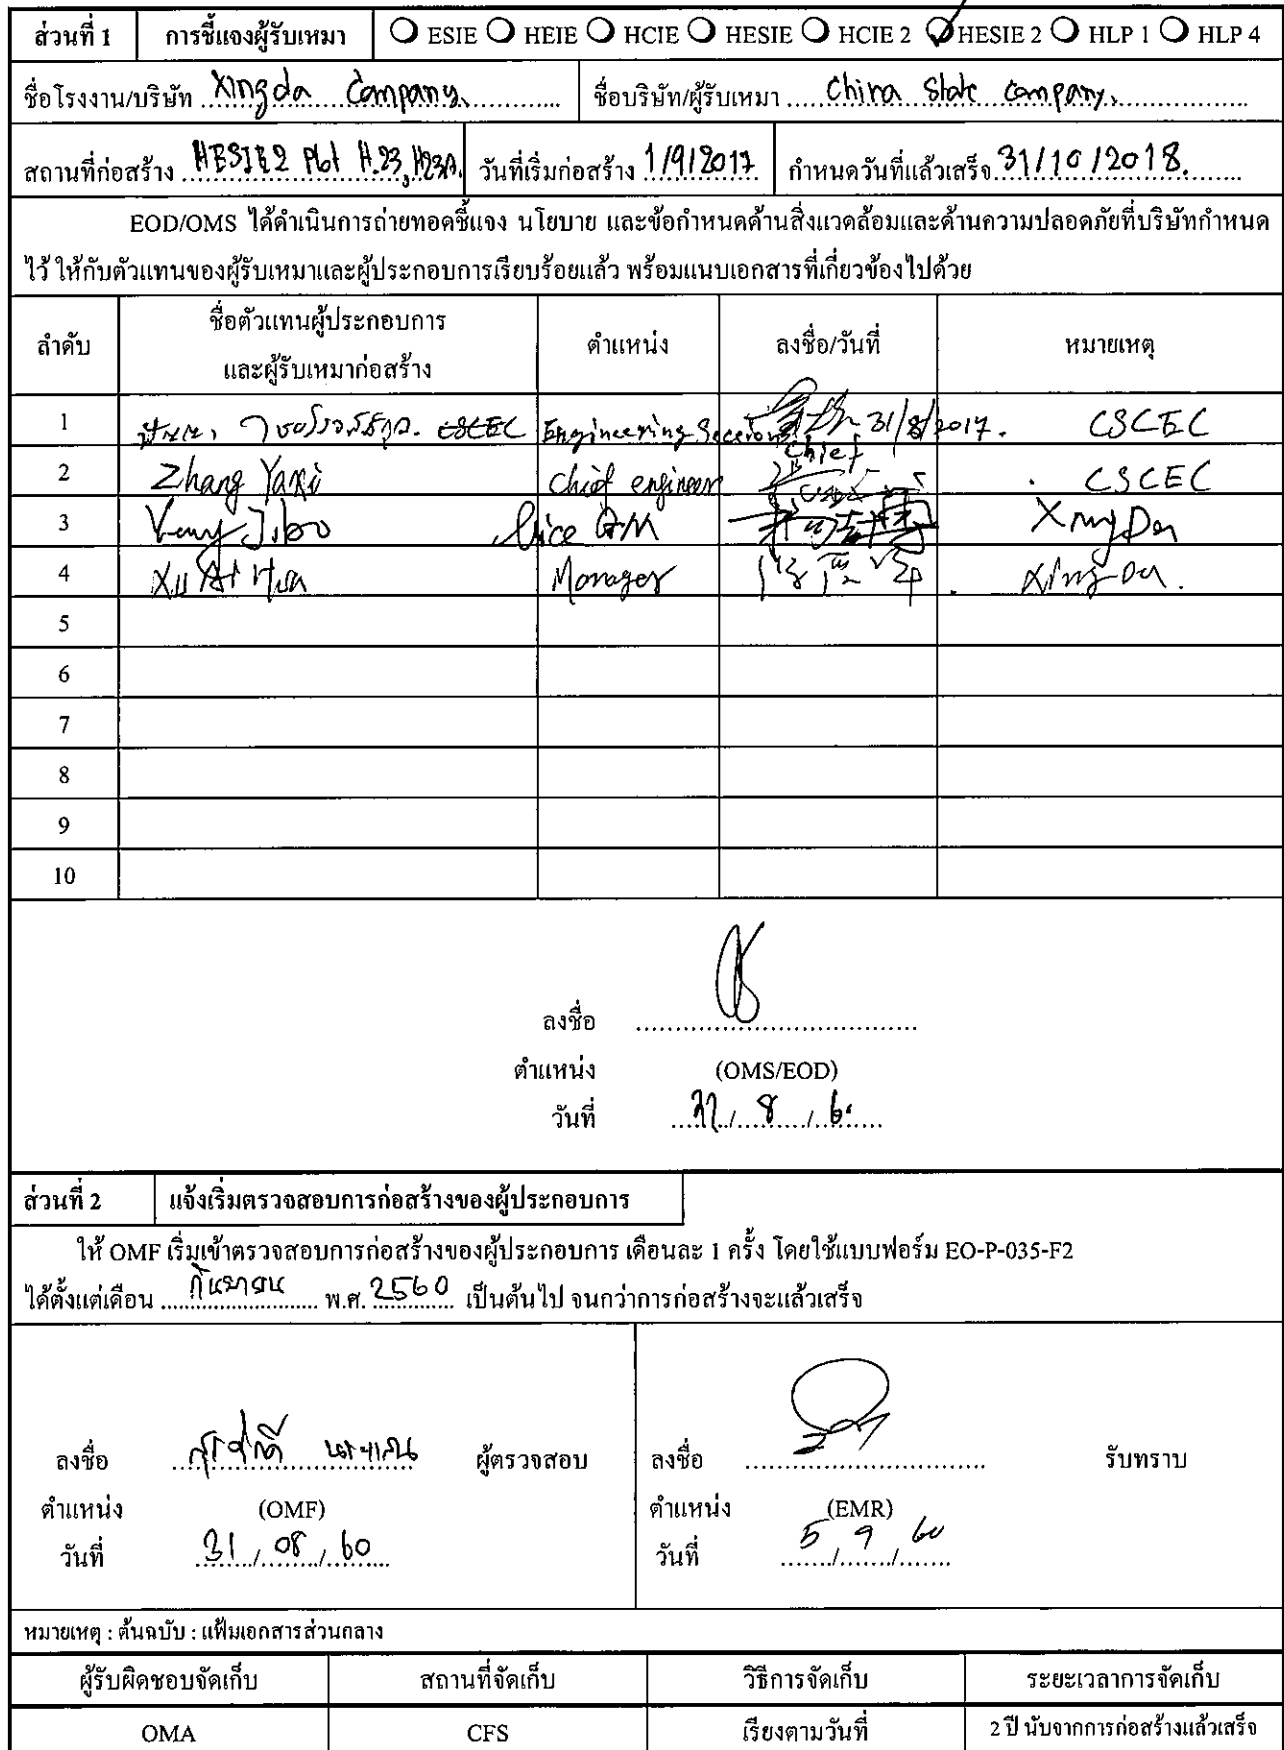 ส่วนที่ 1 การชี้แจงผู้รับเหมา ESIE HEIE HCIE HESIE HCIE 2 HESIE 2 HLP 1 HLP 4
ชื่อโรงงาน/บริษัท Xingda Company. ชื่อบริษัท/ผู้รับเหมา China State Company.
สถานที่ก่อสร้าง HESIE2 Plot H.23, วันที่เริ่มก่อสร้าง 1/9/2017 กำหนดวันที่แล้วเสร็จ 31/10/2018.
EOD/OMS ได้ดำเนินการถ่ายทอดชี้แจง นโยบาย และข้อกำหนดด้านสิ่งแวดล้อมและด้านความปลอดภัยที่บริษัทกำหนด
ไว้ ให้กับตัวแทนของผู้รับเหมาและผู้ประกอบการเรียบร้อยแล้ว พร้อมแนบเอกสารที่เกี่ยวข้องไปด้วย
ลำดับ ชื่อตัวแทนผู้ประกอบการ ตำแหน่ง ลงชื่อ/วันที่ หมายเหตุ
และผู้รับเหมาก่อสร้าง
1 Engineering 31/8/2017. CSCEC
2 Zhang Yaxi Chief engineer Chief CSCEC
3 Vice GM XingDa
4 Xu Ai Hua Manager Xing Da.
5
6
7
8
9
10
ลงชื่อ
ตำแหน่ง (OMS/EOD)
วันที่ 31 / 8 / 60
ส่วนที่ 2 แจ้งเริ่มตรวจสอบการก่อสร้างของผู้ประกอบการ
ให้ OMF เริ่มเข้าตรวจสอบการก่อสร้างของผู้ประกอบการ เดือนละ 1 ครั้ง โดยใช้แบบฟอร์ม EO-P-035-F2
ได้ตั้งแต่เดือน กันยายน พ.ศ. 2560 เป็นต้นไป จนกว่าการก่อสร้างจะแล้วเสร็จ
ลงชื่อ ผู้ตรวจสอบ ลงชื่อ รับทราบ
ตำแหน่ง (OMF) ตำแหน่ง (EMR)
วันที่ 31 / 08 / 60 วันที่ 5 / 9 / 60
หมายเหตุ : ต้นฉบับ : แฟ้มเอกสารส่วนกลาง
ผู้รับผิดชอบจัดเก็บ สถานที่จัดเก็บ วิธีการจัดเก็บ ระยะเวลาการจัดเก็บ
OMA CFS เรียงตามวันที่ 2 ปี นับจากการก่อสร้างแล้วเสร็จ